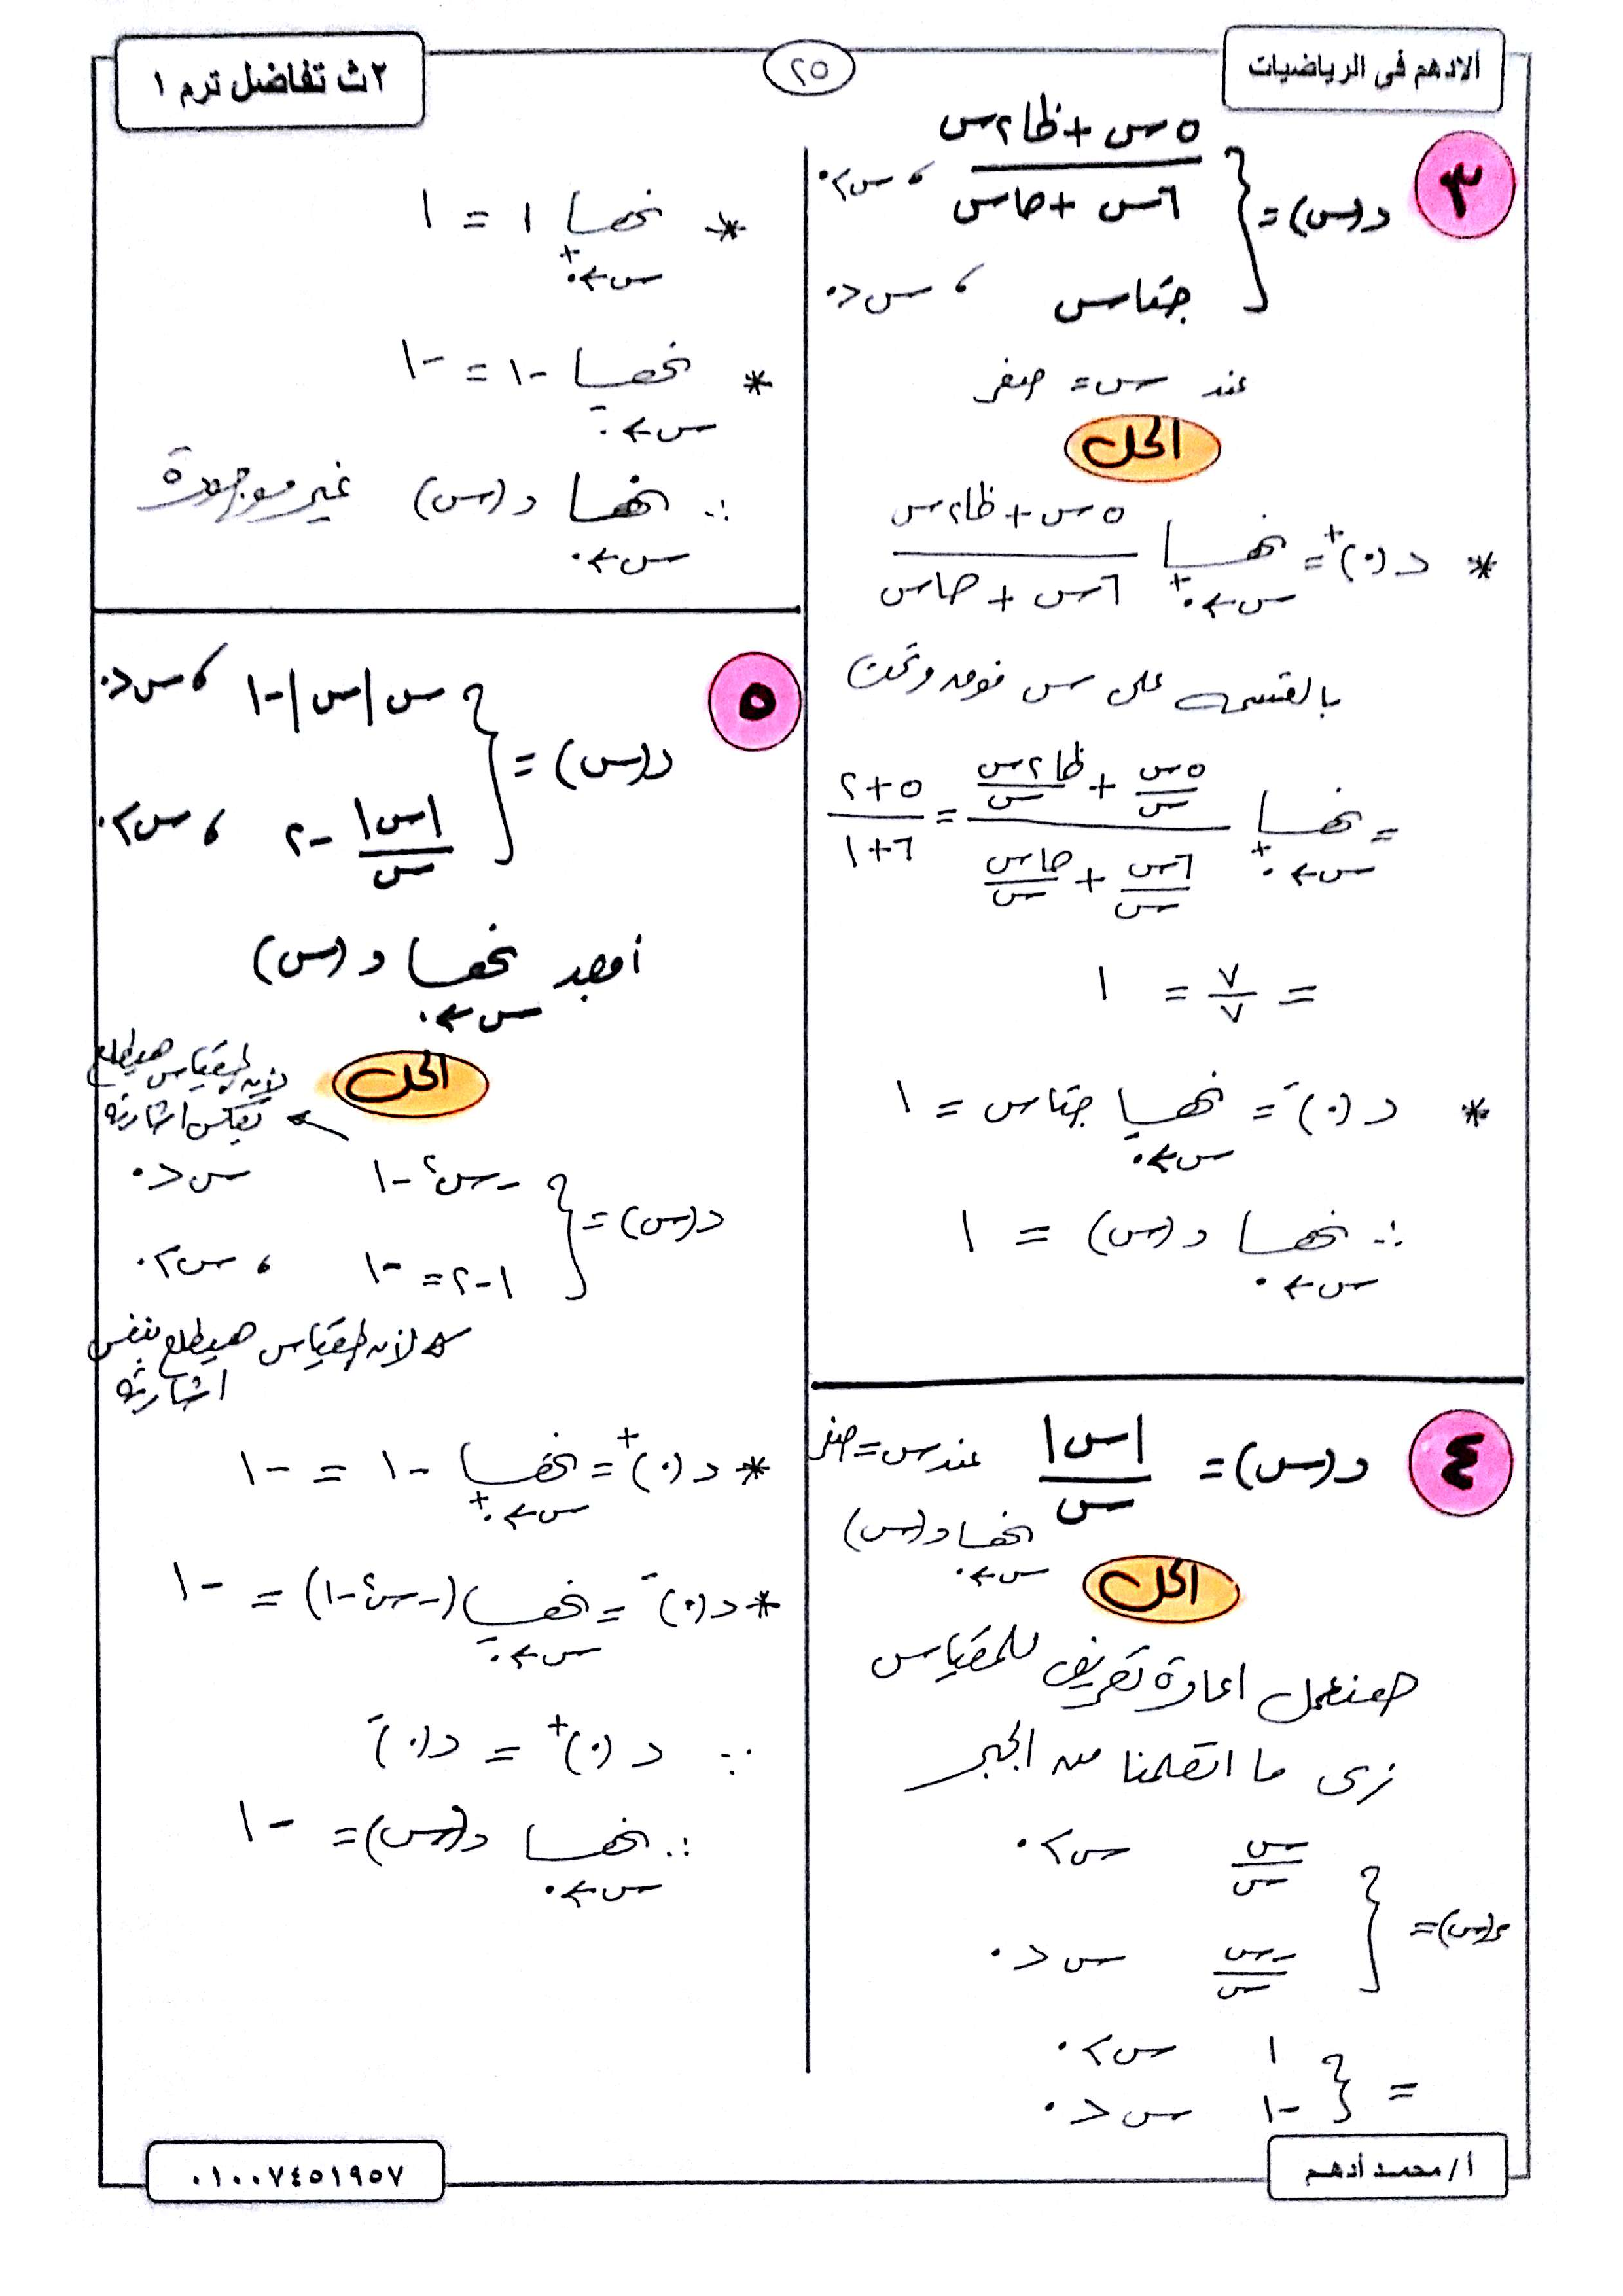 الادهم فى الرياضيات
٢٥
٢ث تفاضل ترم ١
٣
د(س) = { (٥س + ظا٢س) / (٦س + حاس) ، س > ٠
جتاس ، س < ٠
عند س = صفر
الحل
* د(٠)⁺ = نهـــا س←٠⁺ (٥س + ظا٢س) / (٦س + حاس)
بالقسمه على س فوق وتحت
= نهـــا س←٠⁺ (٥س/س + ظا٢س/س) / (٦س/س + حاس/س) = (٥+٢) / (٦+١)
= ٧/٧ = ١
* د(٠)⁻ = نهـــا س←٠⁻ جتاس = ١
∴ نهـــا س←٠ د(س) = ١
٤
د(س) = |س| / س عند س = صفر
نهـــا س←٠ د(س)
الحل
هنعمل اعادة تعريف للمقياس
زى ما اتعلمنا من الجبر
د(س) = { س/س س > ٠
-س/س س < ٠
= { ١ س > ٠
-١ س < ٠
* نهـــا س←٠⁺ ١ = ١
* نهـــا س←٠⁻ -١ = -١
∴ نهـــا س←٠ د(س) غير موجودة
٥
د(س) = { س|س| -١ ، س < ٠
|س|/س -٢ ، س > ٠
أوجد نهـــا س←٠ د(س)
الحل
لأن المقياس هيطلع
بعكس اشارته
د(س) = { -س² -١ س < ٠
١-٢ = -١ ، س > ٠
لأن المقياس هيطلع بنفس
اشارته
* د(٠)⁺ = نهـــا س←٠⁺ -١ = -١
* د(٠)⁻ = نهـــا س←٠⁻ (-س² -١) = -١
∵ د(٠)⁺ = د(٠)⁻
∴ نهـــا س←٠ د(س) = -١
أ/ محمد أدهم
٠١٠٠٧٤٥١٩٥٧